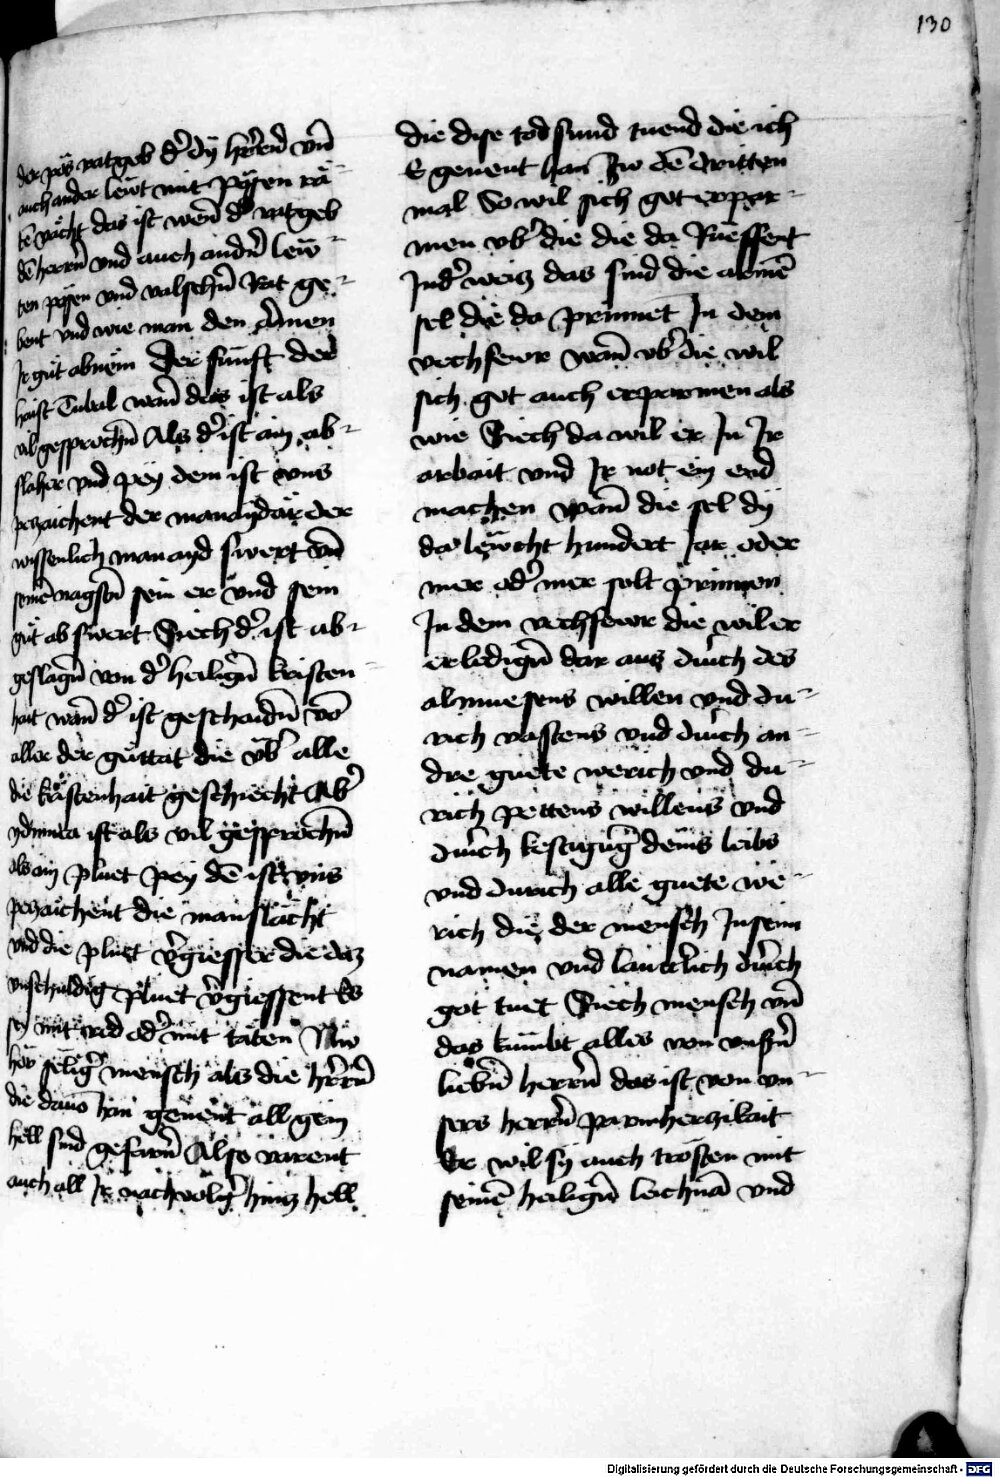 130
der pös ratgeb d' dy herrn vn̄
auch ander lewt mit pösen rä-
ten vächt das ist wen̄ d' ratgeb
dē herrn̄ vnd auch andn̄ lew-
ten pösen vnd valschn̄ Rat ge-
bent vnd wie man den armen
Ir güt abnem Der fünft der
haist Tubal wan̄ das ist als
vil gesprochn̄ Als d' ist ain ab-
slaher vnd pey dem ist vns
pezaichent der manayder der
wissenlich manayd swert vnd
seinē nagstn̄ sein er vnd sein
güt ab swert Siech d' ist ab-
geslagn̄ von d' heilign̄ kristen-
hait wan̄ d' ist geschaidn̄ vō
aller der guttat die vb' alle
die kristenhait geschiecht Ab'
ydumea ist als vil gesprochn̄
als ain pluet pey dē ist vns
pezaichent die manslacht
vnd die pluet v'giesser die daz
vnschuldig pluet v'giessent Es
sey mit rad od' mit täten Nw
hör selig' mensch als die herrn̄
die dauō han genent all gein
hell sind gefarn̄ Also varent
auch all Ir nachvolg' hinz hell
die dise tod sund tuend die ich
E genent han Zw dē dritten
mal So wil sich got erpar-
men vb' die die da Rueffent
In d' weiz das sind die armē
sel die da prinnēt In dem
vechfewr wan̄ vb' die wil
sich got auch erparmen als
wie Siech da wil er In Ir
arbait vnd Ir not ein end
machen wan̄ die sel dy
da leicht hundert Jar oder
mer od' mer solt prinnen
In dem vechfewr die wil er
erledign̄ dar aus durch des
almuesens willen vnd du-
rich vastens vnd durch an-
dre guete werich vnd du-
rich pettens willens vnd
durch kestigūg deins leibs
vnd durich alle guete we-
rich die der mensch In seim
namen vnd lauterlich durch
got tuet Siech mensch vn̄
das kumbt alles von vnsn̄
liebn̄ herrn̄ das ist von vn-
sers herrn̄ parmherzikait
Er wil sy auch trösten mit
seinē heilign̄ leichnā vnd
Digitalisierung gefördert durch die Deutsche Forschungsgemeinschaft - DFG